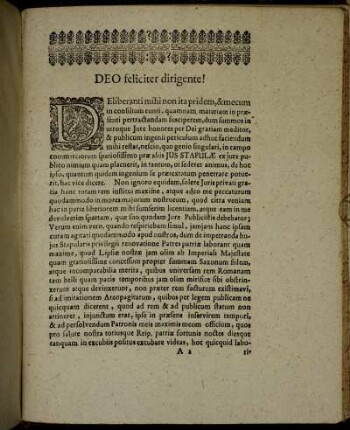 DEO feliciter dirigente!
DEliberanti mihi non ita pridem, & mecum
in consilium eunti, quamnam materiam in præ-
senti pertractandam susciperem, dum summos in
utroque Jure honores per Dei gratiam meditor,
& publicum ingenii periculum adhuc faciendum
mihi restat, nescio, quo genio singulari, in campo
commentariorum spatiosissimo præ aliis JUS STAPULÆ ex jure pu-
blico nimium quam placuerit, in tantum, ut sederet animus, de hoc
ipso, quantum quidem ingenium se prætextorum penetrare potue-
rit, hac vice dicere. Non ignoro equidem, solere Juris privati gra-
tia hanc totam rem institui maxime, atque adeo me peccaturum
quodammodo in morem majorum nostrorum, quod citra veniam
hac in parte libertatem mihi sumserim licentiam, atque eam in me
devolverim spartam, quæ suo quodam Jure Publicistis debebatur;
Verum enim vero, quando respiciebam simul, jamjam hanc ipsam
curam agitari quodammodo apud nostros, dum de impetranda hu-
jus Stapularis privilegii renovatione Patres patriæ laborant quam
maxime, quod Lipsiæ nostræ jam olim ab Imperiali Majestate
quam gratiosissime concessum propter summam Saxonum fidem,
atque incomparabilia merita, quibus universam rem Romanam
tam belli quam pacis temporibus jam olim mirifice sibi obstrin-
xerunt atque devinxerunt, non præter rem facturum existimavi,
si ad imitationem Areopagitarum, quibus per legem publicam ne
quicquam dicerent, quod ad rem & ad publicum statum non
attineret, injunctum erat, ipsi præsenti inservirem tempori,
& ad persolvendum Patronis meis maximis meum officium, quos
pro salute nostra totiusque Reip. patriæ fortunis noctes diesque
tanquam in excubiis positos excubare videas, hoc quicquid labo-
A 2
ris